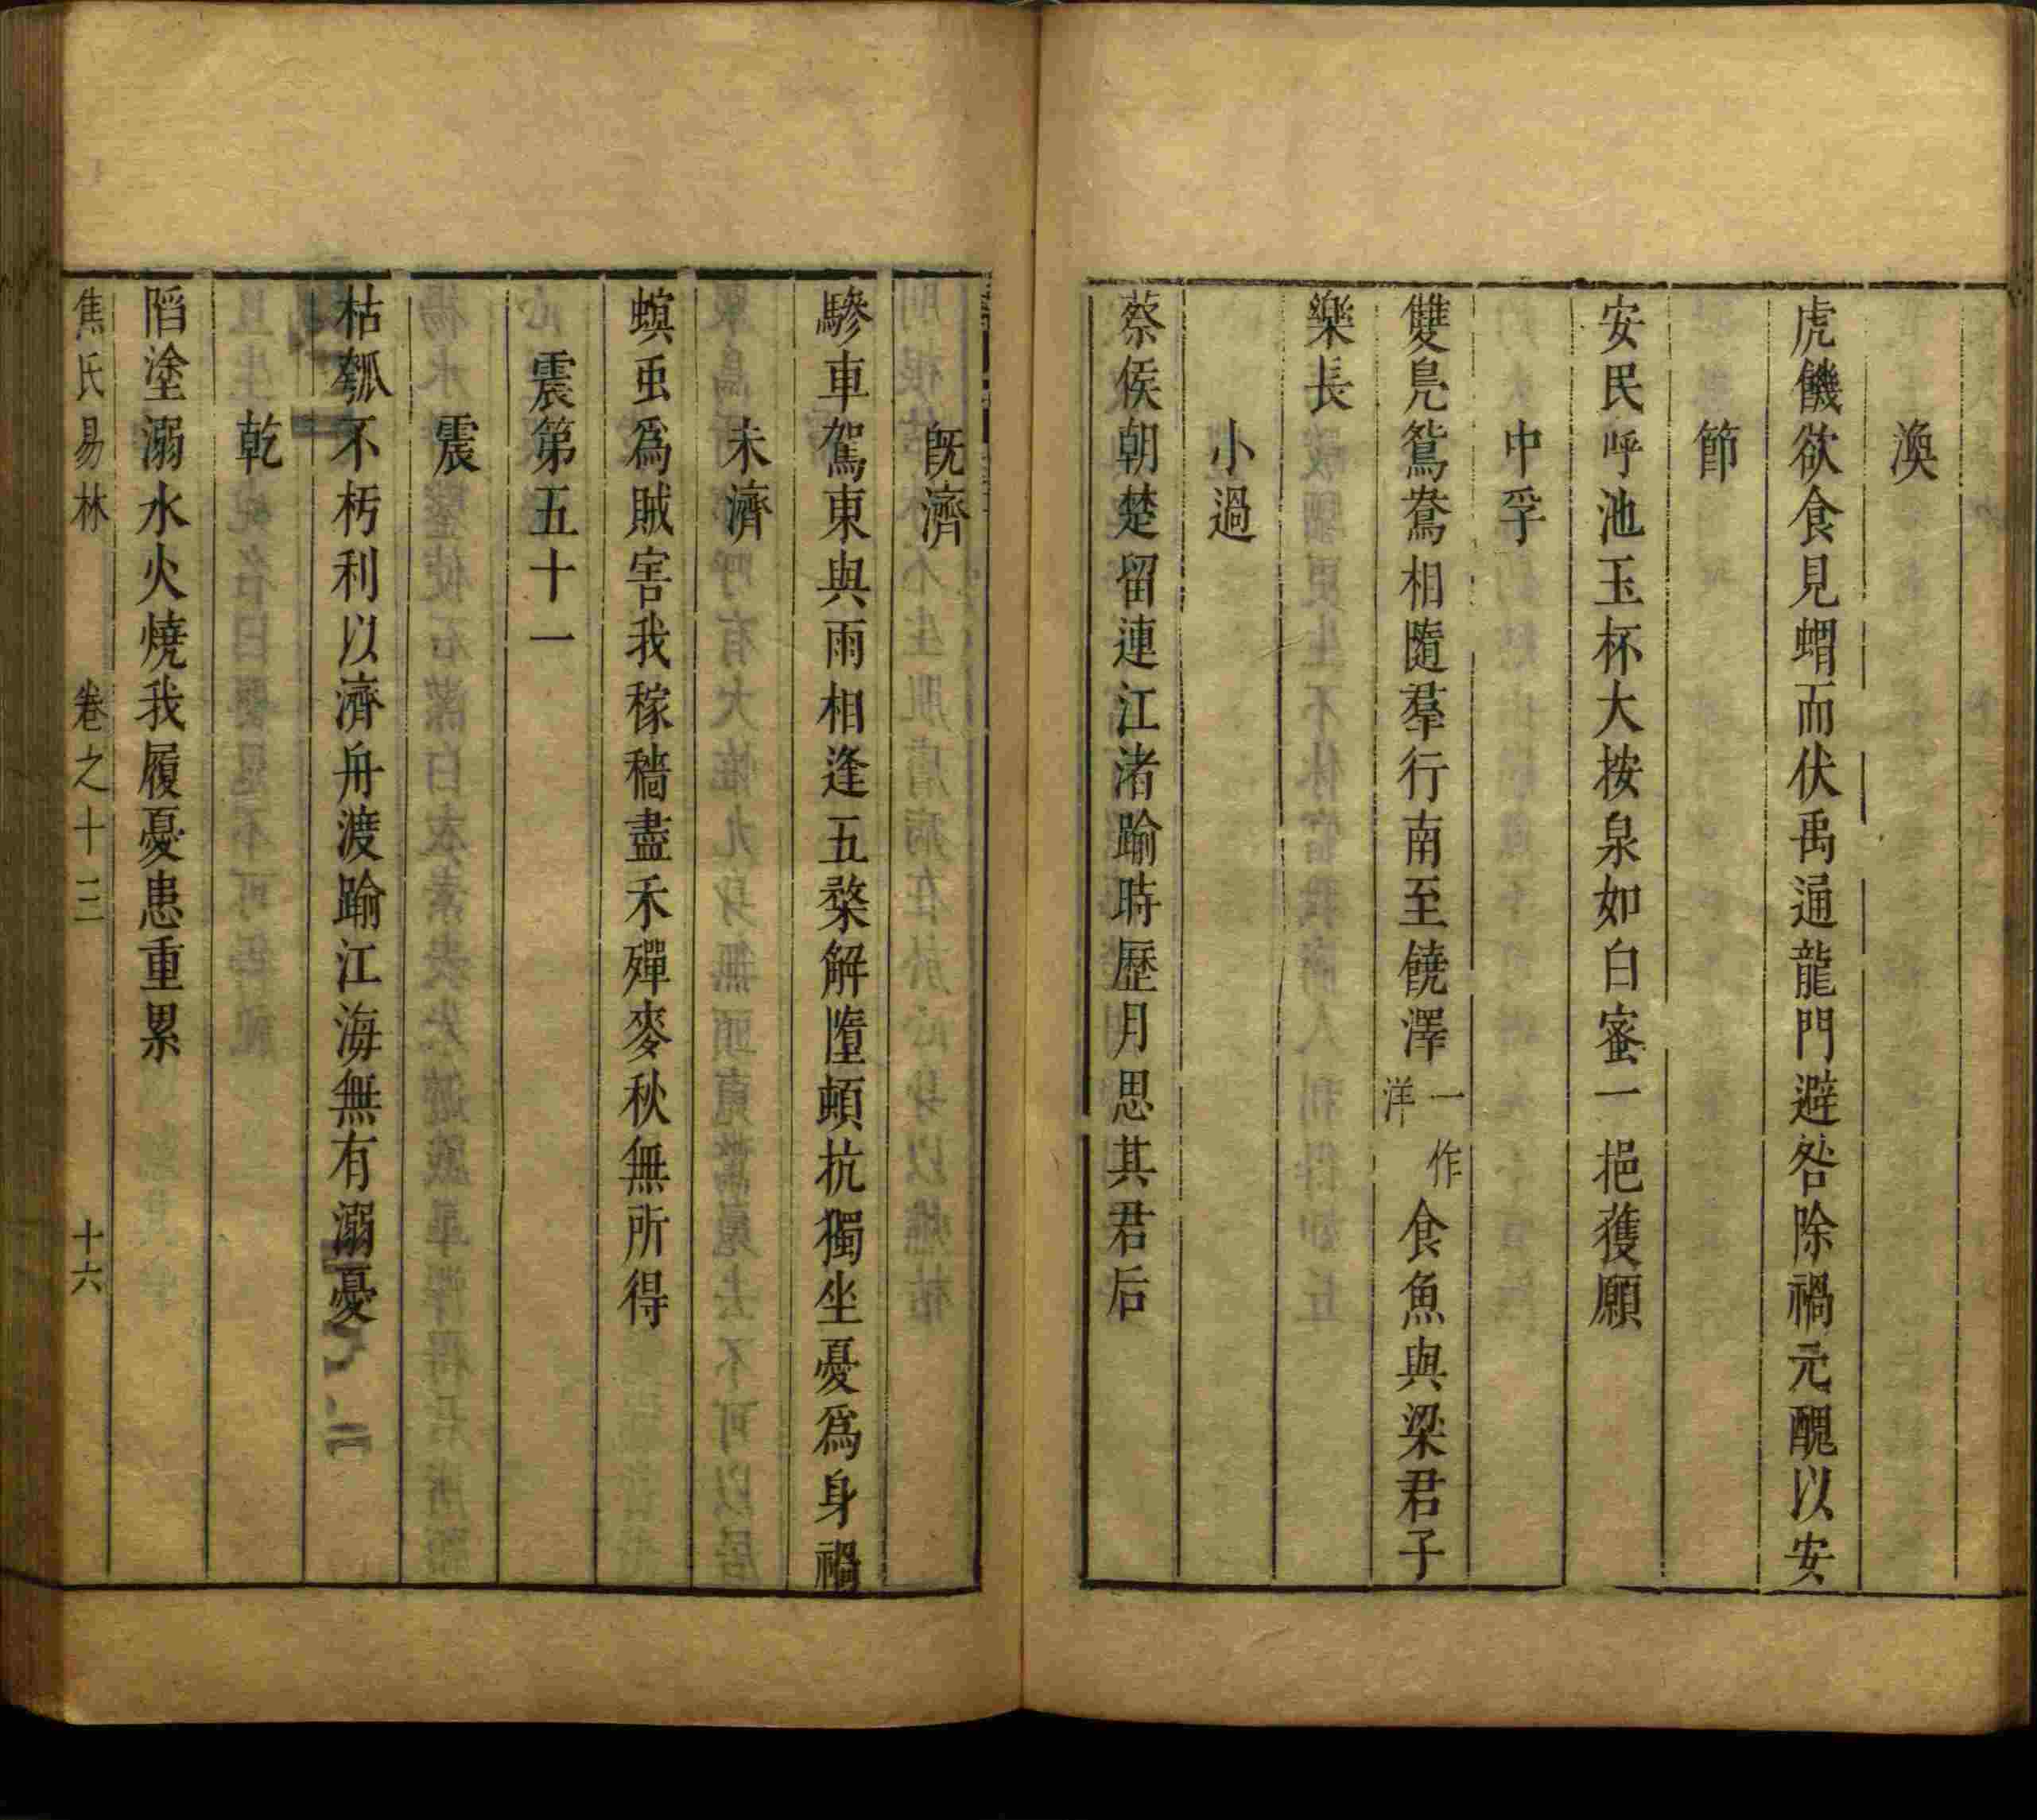 渙
虎饑欲食見蝟而伏禹通龍門避咎除禍元醜以安
節
安民呼池玉杯大按泉如白蜜一挹獲願
中孚
雙鳧鴛鴦相隨羣行南至饒澤一作洋食魚與梁君子
樂長
小過
蔡侯朝楚留連江渚踰時歷月思其君后
旣濟
驂車駕東與雨相逢五楘解墮頓抗獨坐憂爲身禍
未濟
螟虫爲賊害我稼穡盡禾殫麥秋無所得
震第五十一
震
枯瓠不朽利以濟舟渡踰江海無有溺憂
乾
陷塗溺水火燒我履憂患重累
焦氏易林 卷之十三 十六